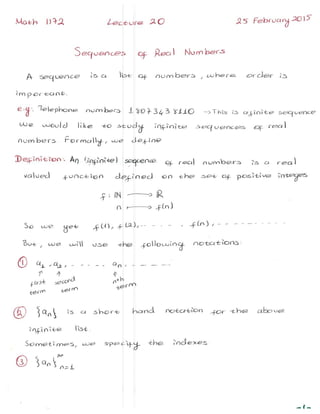 Math 1172 Lecture 20 25 February 2015
Sequences of Real Numbers
A sequence is a list of numbers, where order is
important.
e.g: Telephone numbers 1 807 343 8110 → This is a finite sequence
We would like to study infinite sequences of real
numbers Formally, we define
Definition: An (infinite) sequence of real numbers is a real
valued function defined on the set of positive integers
f: IN → R
n → f(n)
So we get f(1), f(2), - - - - - f(n), - - - - - -
But, we will use the following notations:
① a₁, a₂, - - - - - aₙ - - - - - -
↑ ↑ ↑
first second nth
term term term
② {aₙ} is a short hand notation for the above
infinite list.
Sometimes, we specify the indexes
③ {aₙ}∞n=1